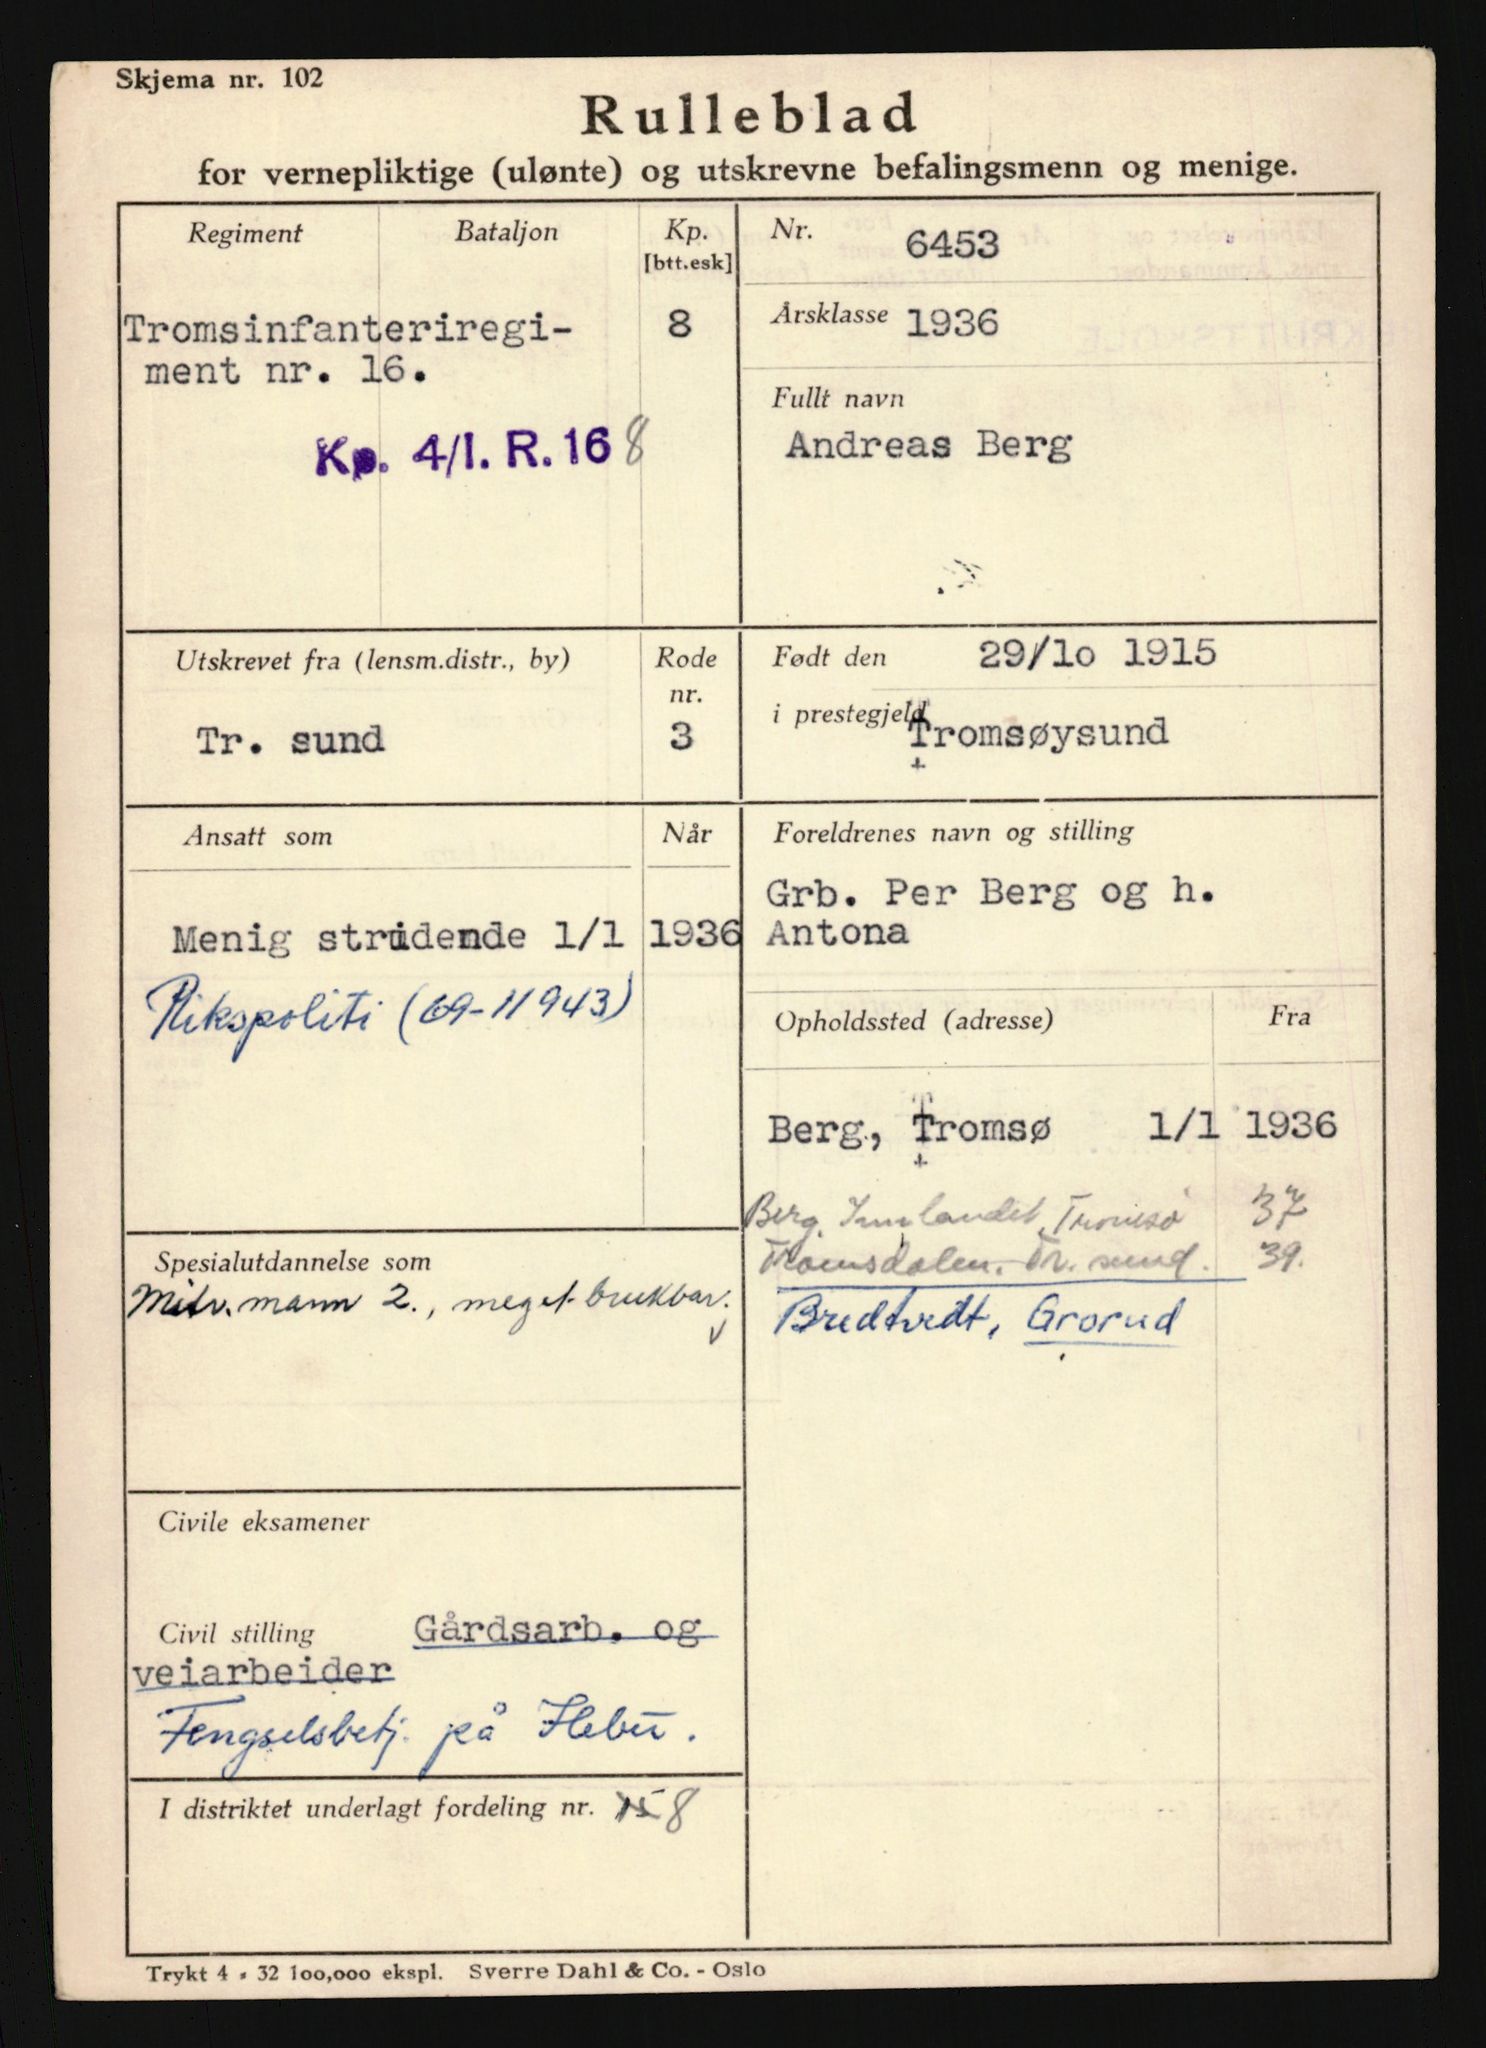 Skjema nr. 102
Rulleblad
for vernepliktige (ulønte) og utskrevne befalingsmenn og menige.
Regiment
Bataljon
Kp.
[btt.esk]
Tromsinfanteriregi-
ment nr. 16.
8
Kp. 4/I. R. 16 8
Nr. 6453
Årsklasse 1936
Fullt navn
Andreas Berg
Utskrevet fra (lensm.distr., by)
Rode
nr.
Tr. sund
3
Født den 29/10 1915
i prestegjeld Tromsøysund
Ansatt som
Når
Menig stridende 1/1 1936
Rikspoliti (69-11943)
Foreldrenes navn og stilling
Grb. Per Berg og h.
Antona
Opholdssted (adresse)
Fra
Berg, Tromsø 1/1 1936
Berg, Innlandet, Tromsø 37
Tromsdalen. Tr. sund. 39.
Bredtvedt, Grorud
Spesialutdannelse som
Mitr. mann 2., meget brukbar.
Civile eksamener
Civil stilling Gårdsarb. og
veiarbeider
Fengselsbetj. på Ilebu.
I distriktet underlagt fordeling nr. 15 8
Trykt 4 - 32 100,000 ekspl. Sverre Dahl & Co. - Oslo